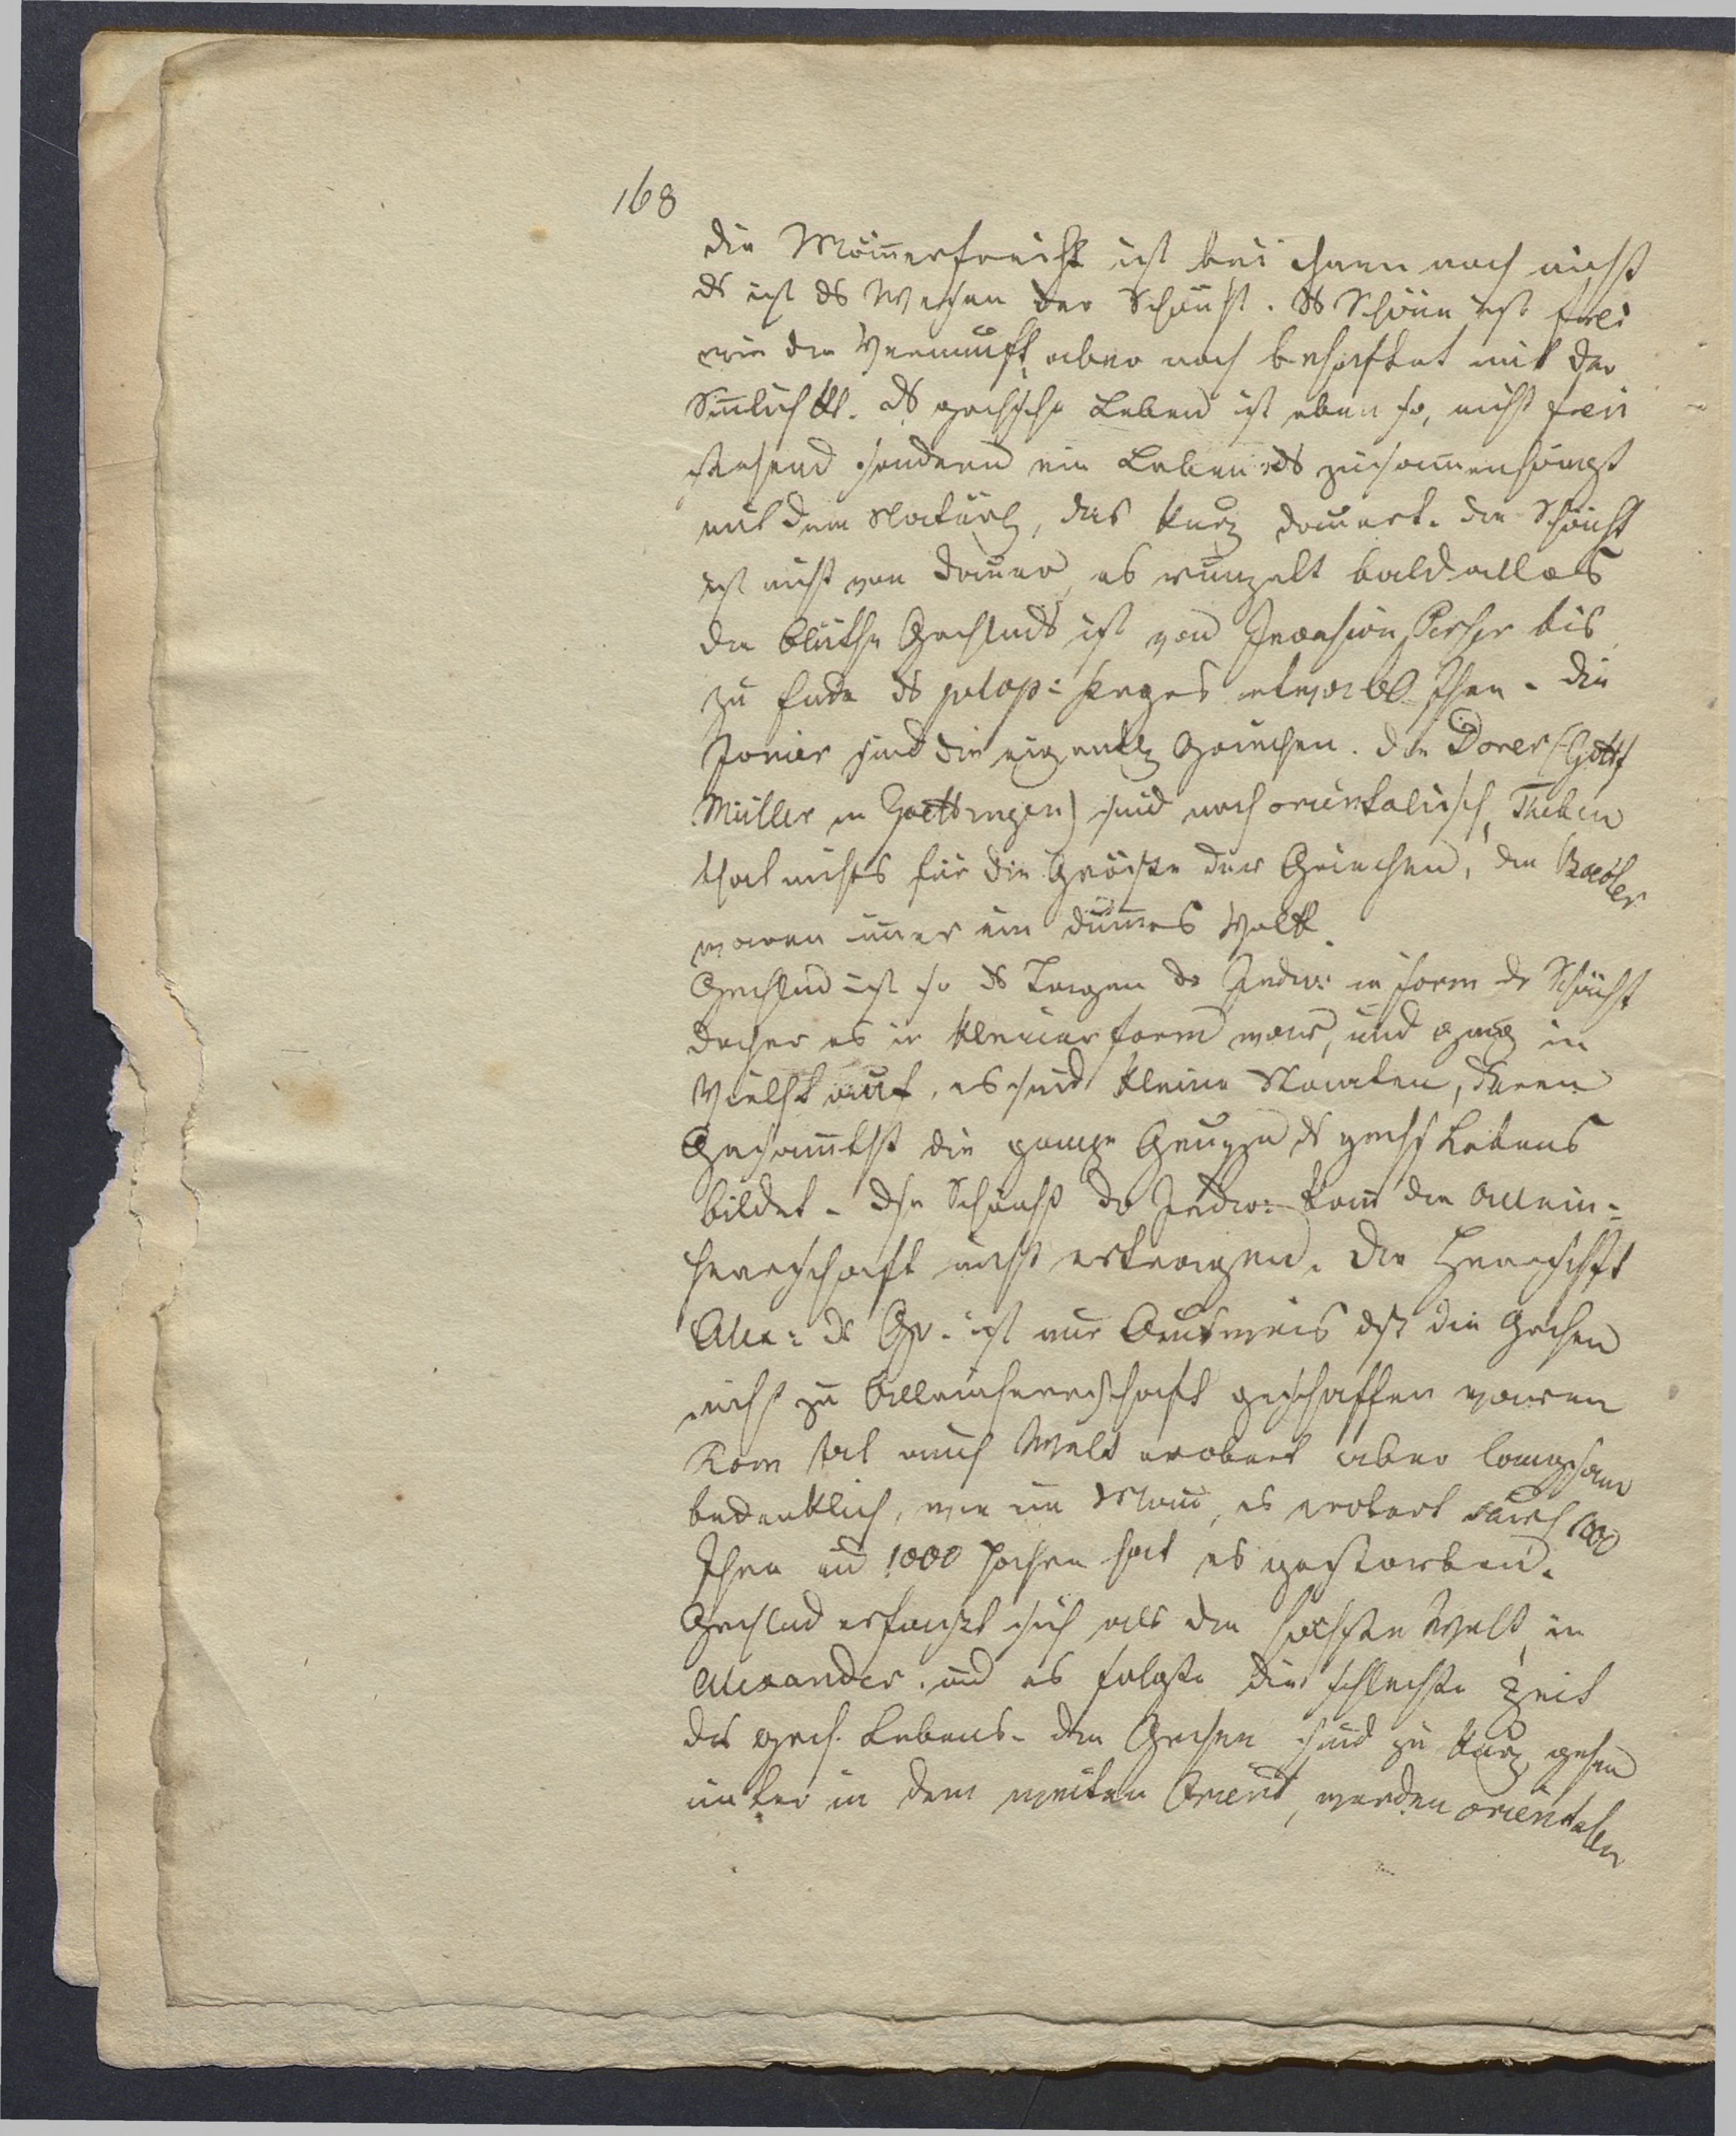 168
die Männerfreiht ist bei ihnen noch nicht
ds ist ds Wesen der Schönht. ds Schöne ist frei
wie die Vernunft, aber noch behaftet mit der
Sinnlichkt. ds grchsche Leben ist eben so, nicht frei
stehend sondern ein Leben ds zusammenhängt
mit dem Natürl, das kurz dauert. die Schönht
ist nicht von Dauer, es runzelt bald alles
die Blüthe Grchlnds ist von Invasion Perser bis
zu Ende ds pelop: Krieges etwa 60 Jhre. die
Jonier sind die eigentl Griechen. die Dorer (Gottf
Müller in Goettingen) sind noch orientalisch, Theben
that nichts für die Größe der Griechen, die Baeoter
waren immer ein dummes Volk.
Grchlnd ist so ds Tragen dr Indiv: in Form dr Schönht
daher es in kleiner Form war, und ging in
Vielht auf, es sind kleine Staaten, deren
Gesammtht die ganze Gruppe ds grchs Lebens
bildet. Dse Schönht dr Indiv: kann die Allein-
herrschaft nicht ertragen. Die Herrschft
Alex: ds Gr. ist nur Ausweis dß die Grchen
nicht zu Alleinherrschaft geschaffen waren
Rom hat auch Welt erobert aber langsam
bedenklich, wie ein Mann, es erobert durch 1000
Jhre und 1000 Jahre hat es gestorben.
Grchlnd erfaßt sich als die höchste Welt in
Alexander. und es folgte die schlechte Zeit
des grch. Lebens. die Grchen sind zu kurz, gehen
unter in dem weiten Orient, werden orientalen